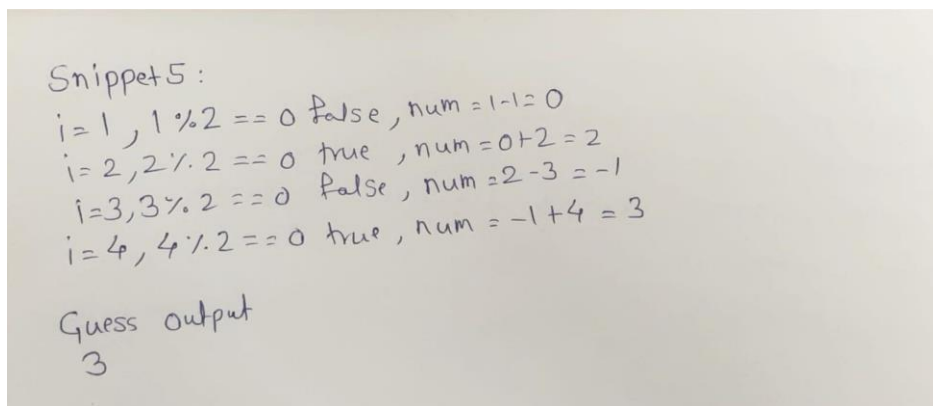 Snippet 5 :
i=1, 1%2 == 0 false, num = 1-1 = 0
i=2, 2%2 == 0 true, num = 0+2 = 2
i=3, 3%2 == 0 false, num = 2-3 = -1
i=4, 4%2 == 0 true, num = -1+4 = 3
Guess output
3